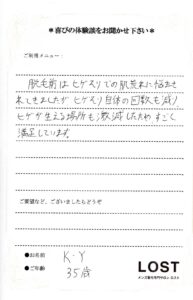 ＊喜びの体験談をお聞かせ下さい＊
ご利用メニュー：
脱毛前はヒゲそりでの肌荒れに悩まさ
れてきましたがヒゲそり自体の回数も減り
ヒゲが生える場所も激減したためすごく
満足しています。
ご要望など、ございましたらどうぞ
●お名前 K・Y
●ご年齢 35歳
LOST
メンズ脱毛専門サロン ロスト